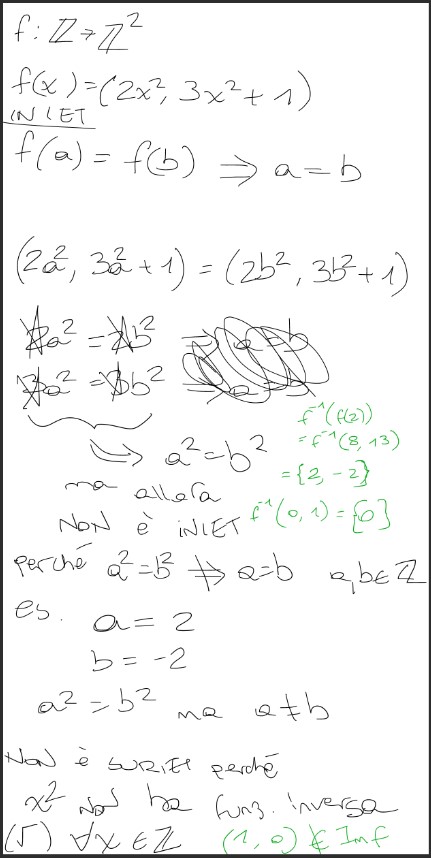 f: ℤ→ℤ²
f(x)=(2x², 3x²+1)
INIET
f(a) = f(b) ⇒ a=b
(2a², 3a²+1) = (2b², 3b²+1)
2a² = 2b²
3a² = 3b²
⇒ a²=b²
f⁻¹(f(2))
= f⁻¹(8, 13)
= {2, -2}
ma allora
NON è INIET
f⁻¹(0, 1) = {0}
perché a²=b² ⇏ a=b a,b∈ℤ
es. a = 2
b = -2
a² = b² ma a≠b
NON è SURIET perché
x² NON ha funz. inversa
(√) ∀x∈ℤ (1, 0) ∉ Imf